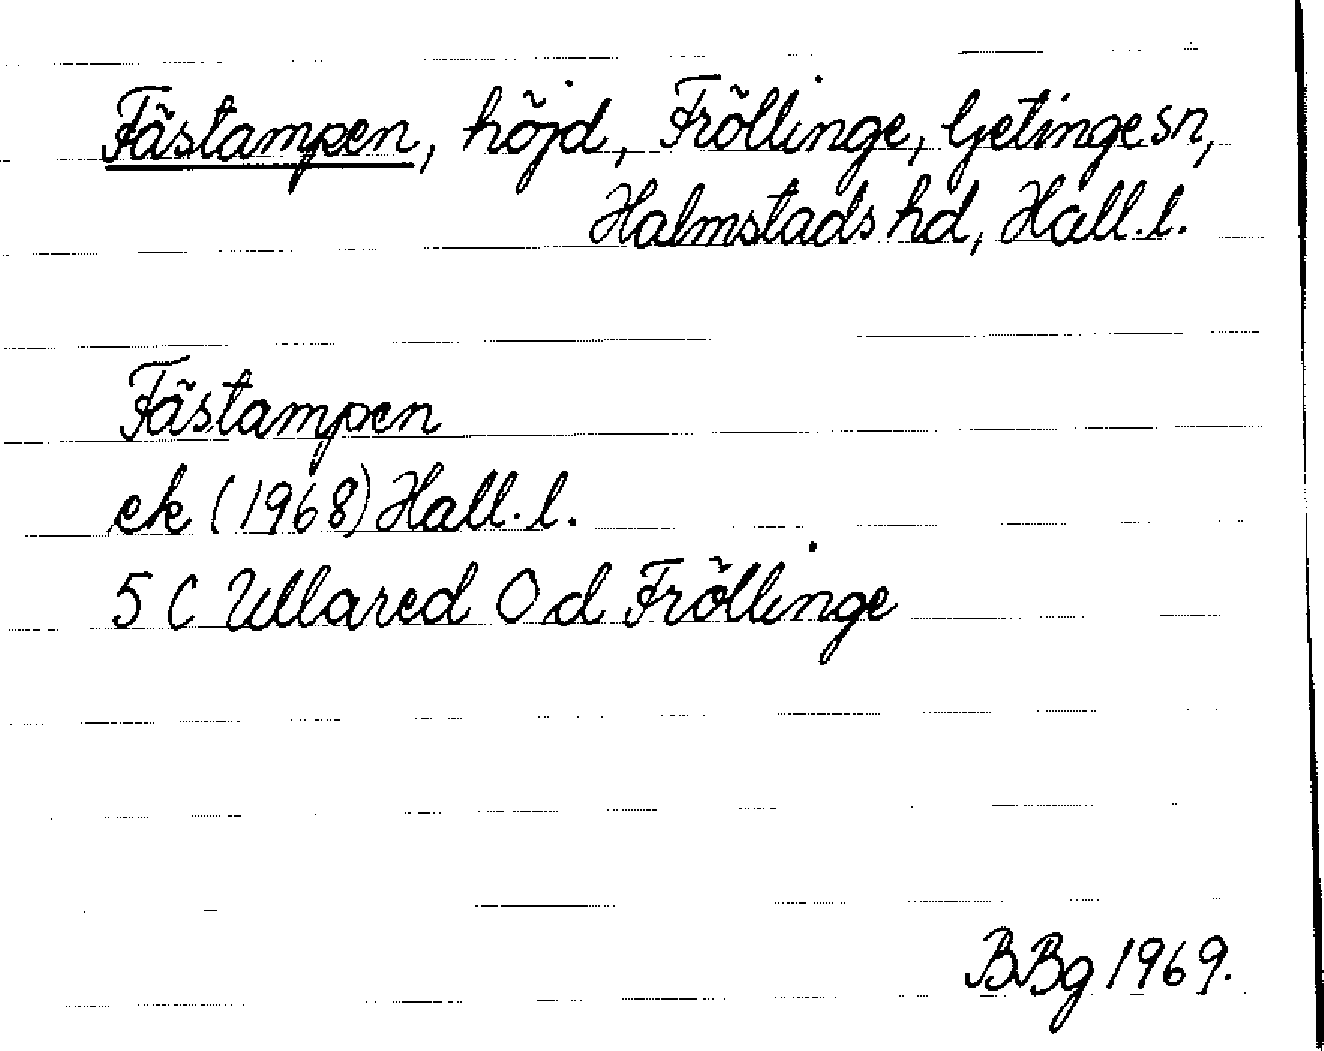 Fästampen, höjd, Fröllinge, Getinge sn,
Halmstads hd, Hall. l.
Fästampen
ek (1968) Hall. l.
5 C Ullared O d Fröllinge
BBg 1969.